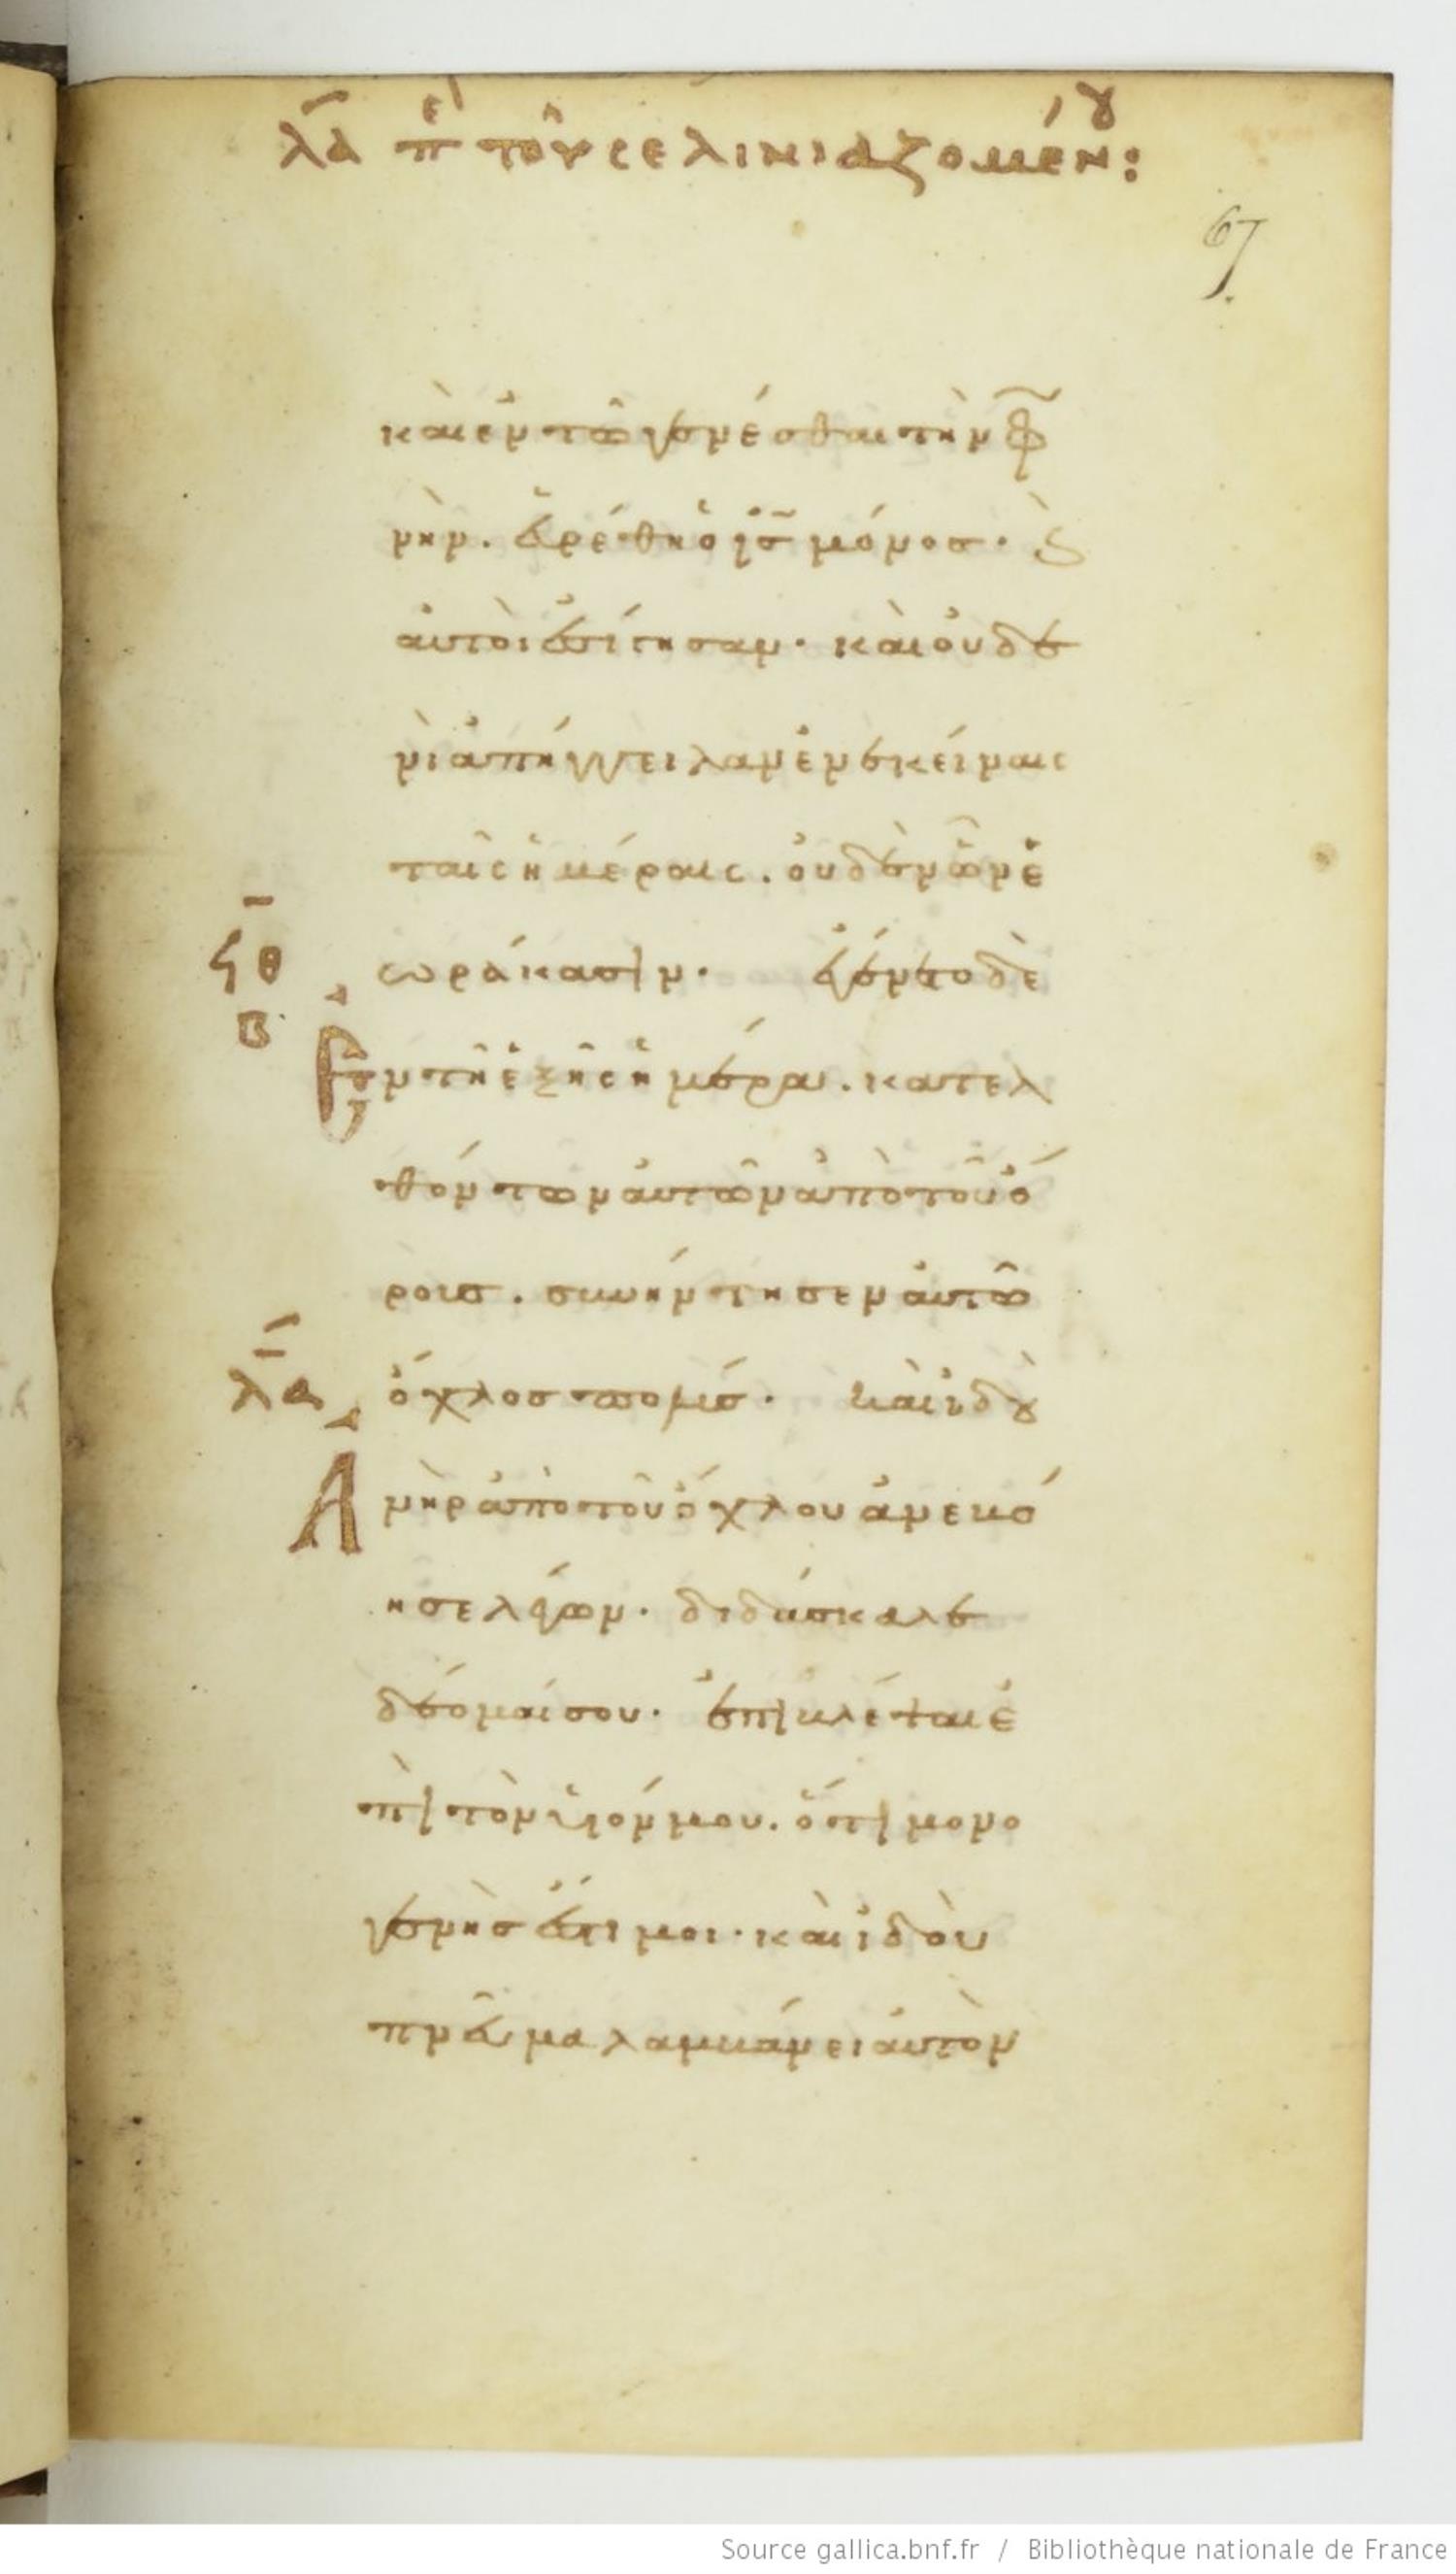 λα π ε τοῦ σεληνιαζομένου:
67.
καὶ ἐν τῶ γενέσθαι τὴν φω
νὴν. εὑρέθη ὁ ις μόνος. καὶ
αὐτοὶ ἐσίγησαν. καὶ οὐδε
νὶ ἀπήγγειλαν ἐν ἐκείναις
ταῖς ἡμέραις. οὐδὲν ὧν ἑ
ωράκασιν. ἐγένετο δὲ
ϟθ
β
ἐν τῆ ἑξῆς ἡμέρα. κατελ
θόντων αὐτῶν ἀπὸ τοῦ ό
ρους. συνήντησεν αὐτῶ
λα
ὄχλος πολύς. καὶ ἰδοὺ
ἀνὴρ ἀπὸ τοῦ όχλου ἀνεβό
ησε λέγων. διδάσκαλε
δέομαί σου. ἐπίβλεται ἐ
πὶ τὸν υἱόν μου. ὅτι μονο
γενὴς ἐστί μοι. καὶ ἰδοὺ
πνεῦμα λαμβάνει αὐτὸν
Source gallica.bnf.fr / Bibliothèque nationale de France